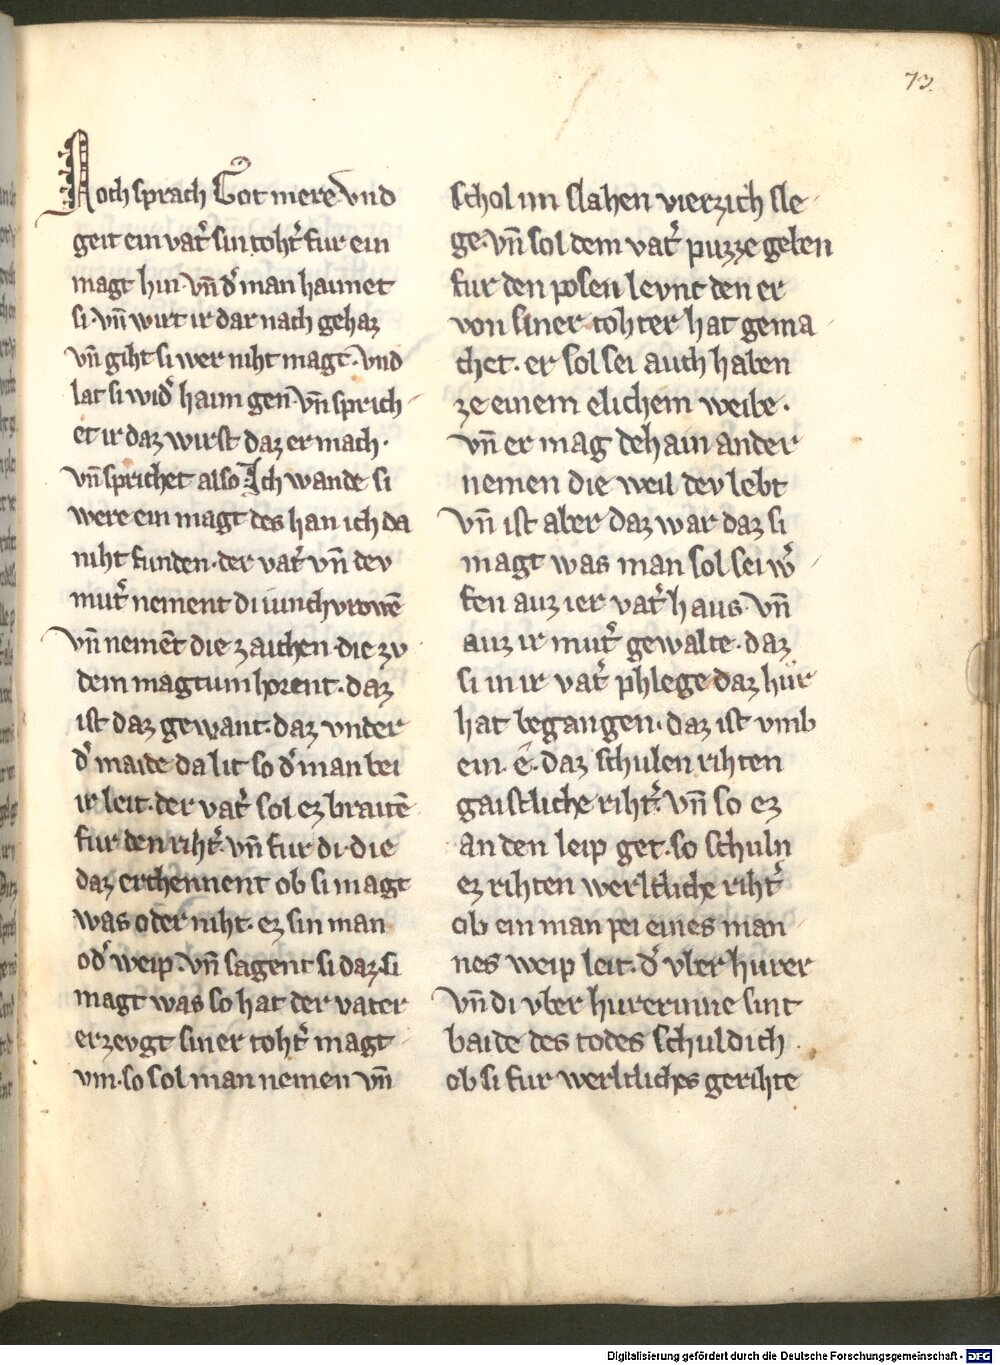 73.
Noch sprach Got mere vnd
geit ein vat͛ sin toht͛ fur ein
magt hin. vn̄ d͛ man haunet
si. vn̄ wirt ir dar nach gehaz
vn̄ giht si wer niht magt. vnd
lat si wid͛ haim gen. vn̄ sprich
et ir daz wirst daz er mach.
vn̄ sprichet also Ich wande si
were ein magt des han ich da
niht funden. der vat͛ vn̄ dev
mut͛ nement di iunchvrowē
vn̄ nemēt die zaichen. die zv
dem magtum horent. daz
ist daz gewant. daz vnder
d͛ maide da lit so d͛ man bei
ir leit. der vat͛ sol ez braitē
fur den riht͛. vn̄ fur di. die
daz erchennent ob si magt
was oder niht. ez sin man
od͛ weip. vn̄ sagent si daz. si
magt was so hat der vater
erzevgt siner toht͛ magt
vm. so sol man nemen vn̄
schol im slahen vierzich sle
ge. vn̄ sol dem vat͛ puzze geben
fur den posen levnt den er
von siner tohter hat gema
chet. er sol sei auch haben
ze einem elichem weibe.
vn̄ er mag dehain ander
nemen die weil dev lebt
vn̄ ist aber daz war daz si
magt was man sol sei w͛
fen auz ier vat͛ haus. vn̄
auz ir mut͛ gewalte. daz
si in ir vat͛ phlege daz hur
hat begangen. daz ist vmb
ein. é. daz schulen rihten
gaistliche riht͛. vn̄ so ez
an den leip get. so schuln
ez rihten werltliche riht͛
ob ein man pei eines man
nes weip leit. d͛ vber hurer
vn̄ di vber hurerinne sint
baide des todes schuldich
ob si fur werltliches gerihte
Digitalisierung gefördert durch die Deutsche Forschungsgemeinschaft - DFG